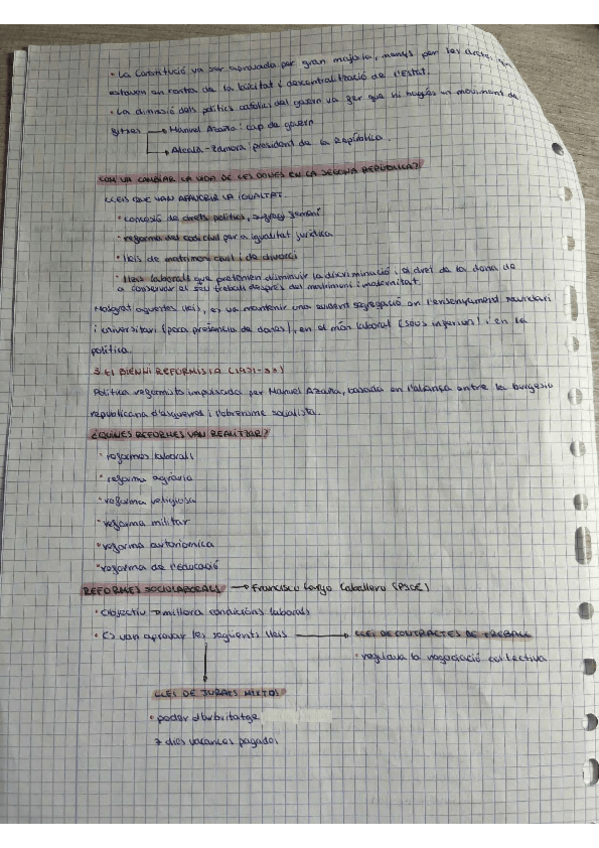 · La Constitució va ser aprovada per gran majoria, menys per les dretes, que
estaven en contra de la laïcitat i descentralització de l'estat.
· La dimissió dels polítics catòlics del govern va fer que hi hagués un moviment de
Manuel Azaña: cap de govern
Alcalá-Zamora: president de la República.
COM VA CANVIAR LA VIDA DE LES DONES EN LA SEGONA REPÚBLICA?
LLEIS QUE VAN AFAVORIR LA IGUALTAT.
· concessió de drets polítics, sufragi femení
· reforma del codi civil per a igualitat jurídica
· lleis de matrimoni civil i de divorci
· lleis laborals que pretenen disminuir la discriminació i el dret de la dona de
a conservar el seu treball després del matrimoni i maternitat.
Malgrat aquestes lleis, es va mantenir una evident segregació en l'ensenyament secundari
i universitari (poca presència de dones), en el món laboral (sous inferiors) i en la
política.
3. EL BIENNI REFORMISTA (1931-33)
Política reformista impulsada per Manuel Azaña, basada en l'aliança entre la burgesia
republicana d'esquerres i l'obrerisme socialista.
¿QUINES REFORMES VAN REALITZAR?
· reformes laborals
· reforma agrària
· reforma religiosa
· reforma militar
· reforma autonòmica
· reforma de l'educació
REFORMES SOCIOLABORALS → Francisco Largo Caballero (PSOE)
· Objectiu → millora condicions laborals
· Es van aprovar les següents lleis → LLEI DE CONTRACTES DE TREBALL
· regulava la negociació col·lectiva
LLEI DE JURATS MIXTOS
· poder d'arbitatge
7 dies vacances pagades